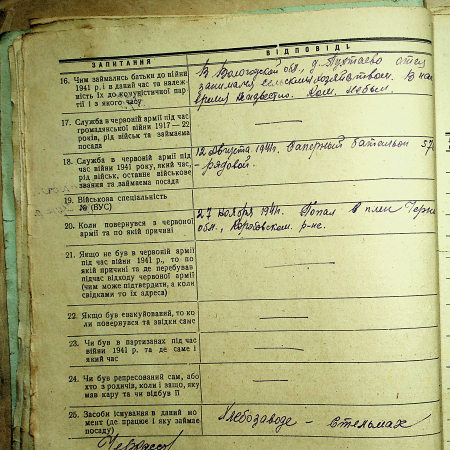 ЗАПИТАННЯ
ВІДПОВІДЬ
16. Чим займались батьки до війни
1941 р. і в даний час та належ-
ність їх до комуністичної пар-
тії і з якого часу
В Вологодской обл., д. отец
занимался сельским хозяйством. В нас
время неизвестно. Ком. не был.
17. Служба в червоній армії під час
громадянської війни 1917 — 22
років, рід військ та займаєма
посада
18. Служба в червоній армії під
час війни 1941 року, який час,
рід військ, останнє військове
звання та займаєма посада
12 Августа 1941г. Саперный батальон 57
- рядовой.
19. Військова спеціальність
№ (ВУС)
20. Коли повернувся з червоної
армії та по якій причині
27 ноября 1941г. Попал в плен Черни
обл., р-не.
21. Якщо не був в червоній армії
під час війни 1941 р., то по
якій причині та де перебував
під час відходу червоної армії
(чим може підтвердити, а коли
свідками то їх адреса)
22. Якщо був евакуйований, то ко
ли повернувся та звідки саме
23. Чи був в партизанах під час
війни 1941 р. та де саме і
який час
24. Чи був репресований сам, або
хто з родичів, коли і защо, яку
мав кару та чи відбув її
25. Засоби існування в даний мо
мент (де працює і яку займає
посаду)
Хлебозаводе - Стельмах